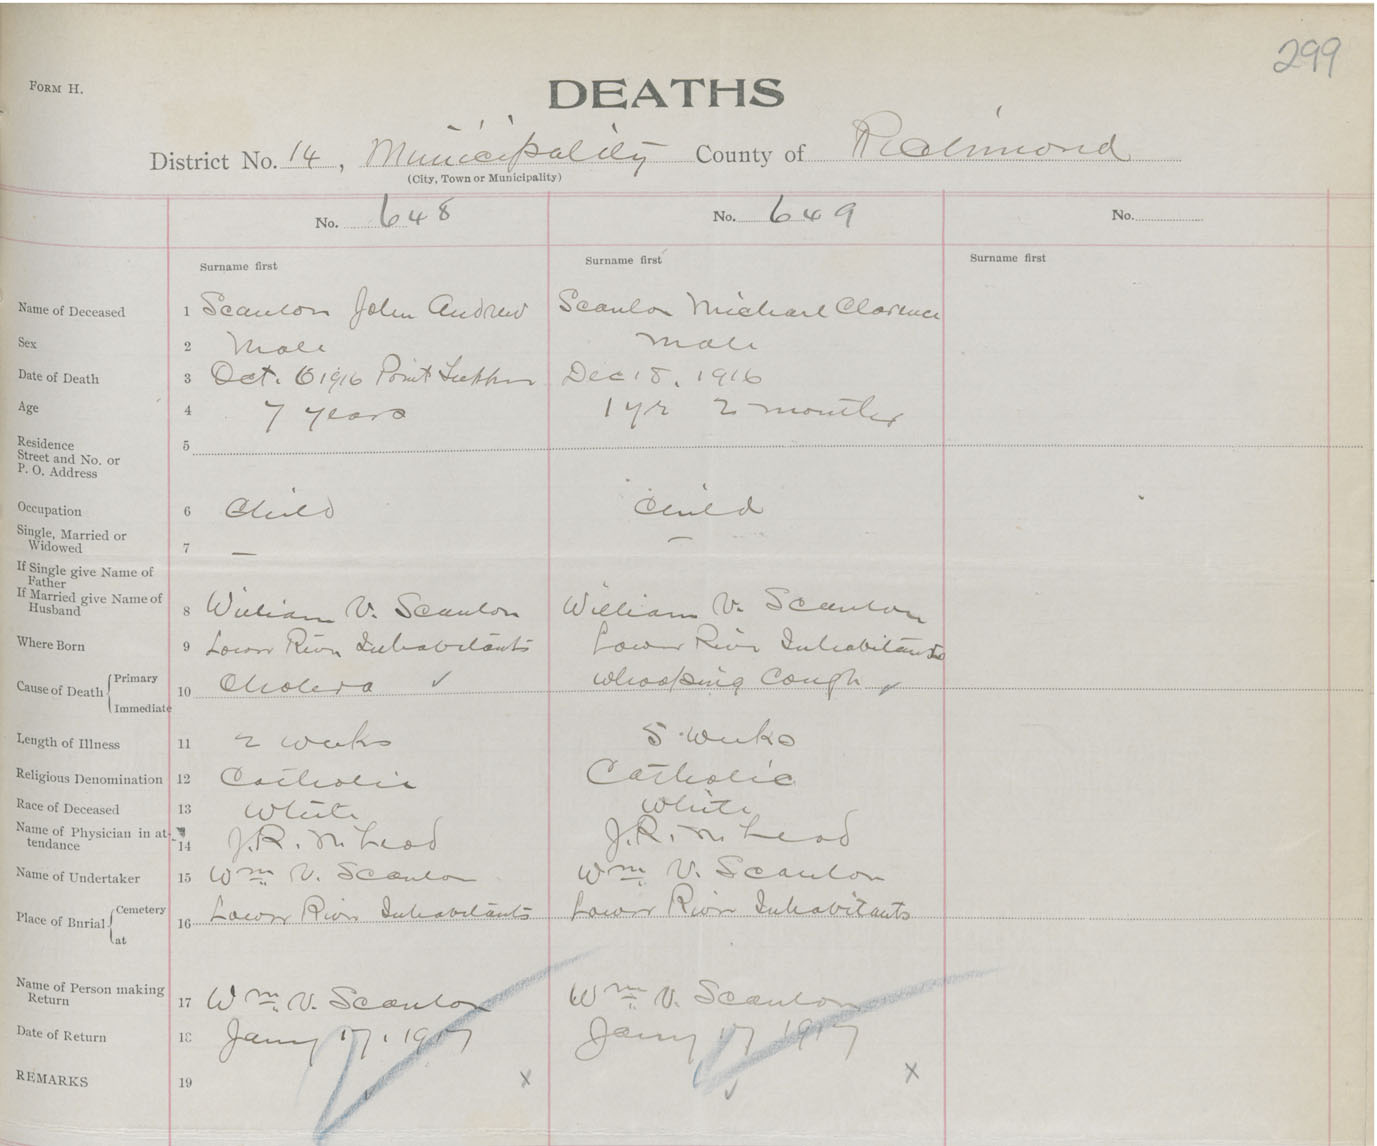 299
FORM H.
DEATHS
District No. 14, Municipality County of Richmond
(City, Town or Municipality)
No. 648 No. 649 No.
Surname first Surname first Surname first
Name of Deceased 1 Scanlon John Andrew Scanlon Michael Clarence
Sex 2 Male male
Date of Death 3 Oct. 6 1916 Point Tupper Dec 18, 1916
Age 4 7 years 1 yr 2 months
Residence
Street and No. or
P. O. Address 5
Occupation 6 Child Child
Single, Married or
Widowed 7 — —
If Single give Name of
Father
If Married give Name of
Husband 8 William V. Scanlon William V. Scanlon
Where Born 9 Lower River Inhabitants Lower River Inhabitants
Cause of Death { Primary
10 Cholera ✓ Whooping Cough ✓
Immediate
Length of Illness 11 2 weeks 5 weeks
Religious Denomination 12 Catholic Catholic
Race of Deceased 13 White White
Name of Physician in at-
tendance 14 J.R. McLeod J.R. McLeod
Name of Undertaker 15 Wm. V. Scanlon Wm. V. Scanlon
Place of Burial { Cemetery
16 Lower River Inhabitants Lower River Inhabitants
at
Name of Person making
Return 17 Wm. V. Scanlon Wm. V. Scanlon
Date of Return 18 Jany 17, 1917 Jany 17 1917
REMARKS 19 x x